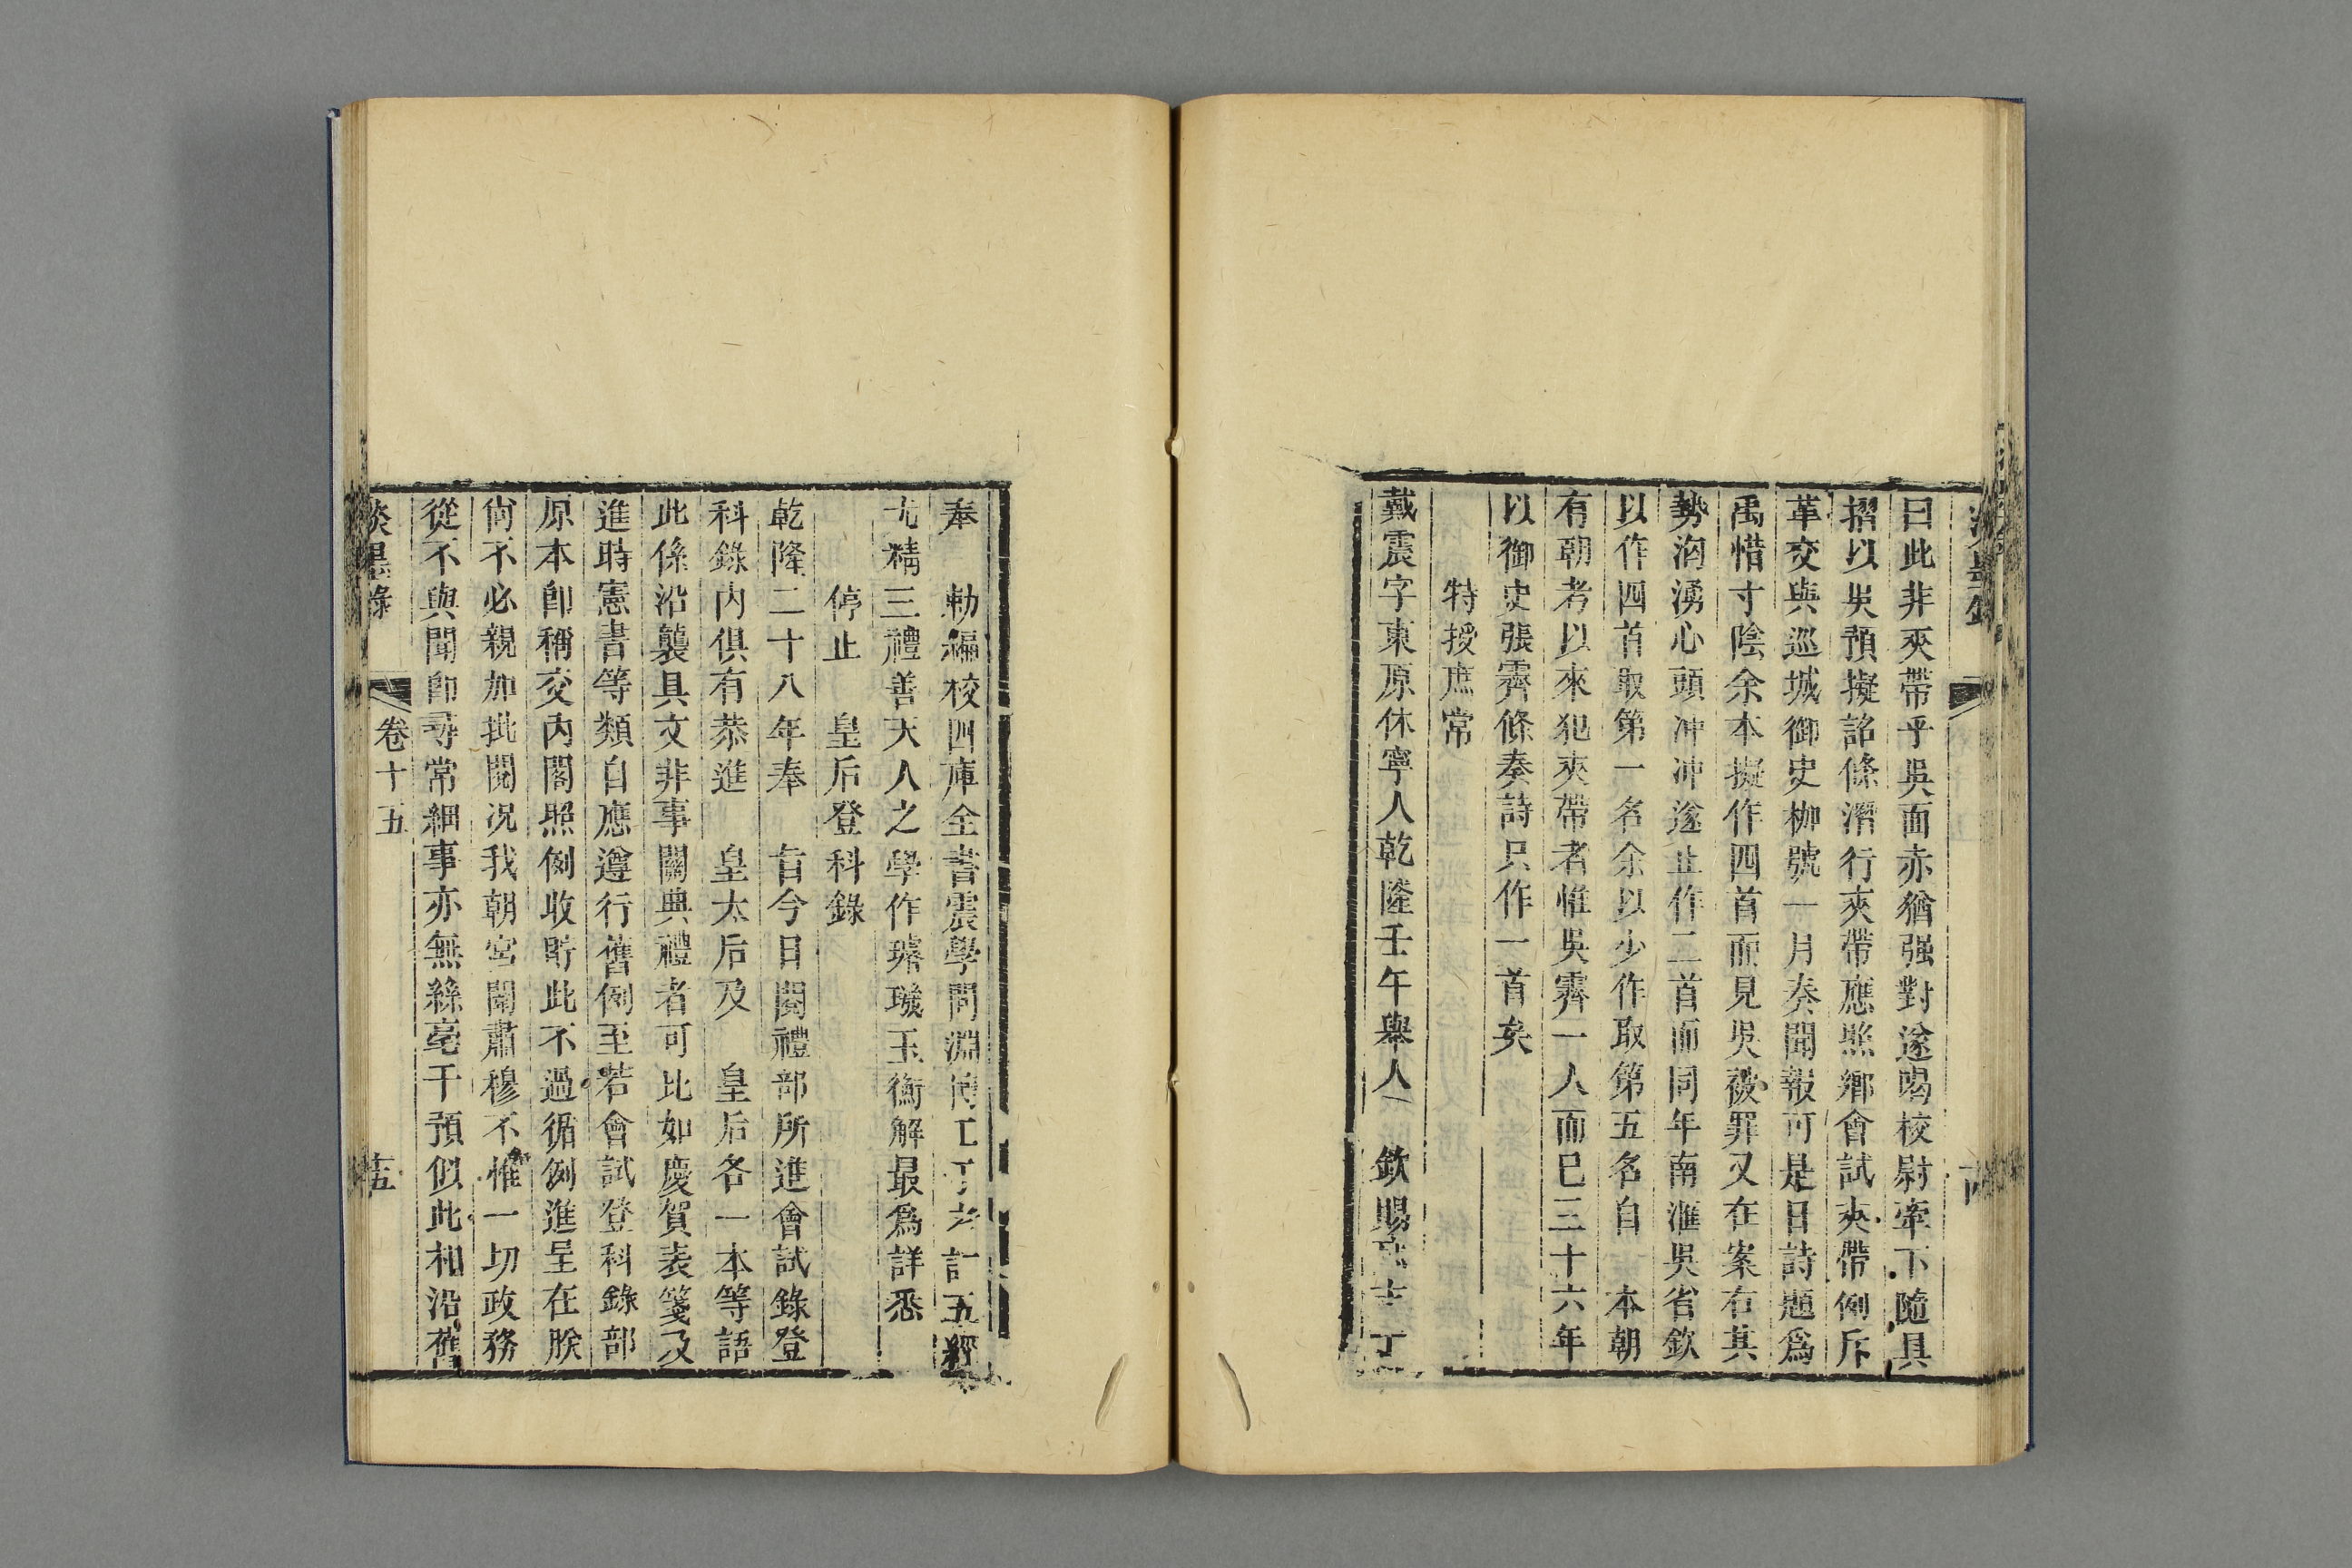 曰此非夾帶乎吳面赤猶强對遂喝校尉牽下隨具
摺以吳預擬詔條潛行夾帶應照鄉會試夾帶例斥
革交與巡城御史枷號一月奏聞報可是日詩題爲
禹惜寸陰余本擬作四首而見吳被罪又在案右其
勢洶湧心頭冲冲遂止作二首而同年南滙吳省欽
以作四首取第一名余以少作取第五名自 本朝
有朝考以來犯夾帶者惟吳霽一人而巳三十六年
以御史張霽條奏詩只作一首矣
特授庶常
戴震字東原休寧人乾隆壬午舉人 欽賜
奉 勅編校四庫全書震學問淵 計五經
尤精三禮善天人之學作璿璣玉衡解最爲詳悉
停止 皇后登科錄
乾隆二十八年奉 旨今日閱禮部所進會試錄登
科錄內俱有恭進 皇太后及 皇后各一本等語
此係沿襲具文非事關典禮者可比如慶賀表箋及
進時憲書等類自應遵行舊例至若會試登科錄部
原本卽稱交內閣照例收貯此不過循例進呈在朕
尙不必親加批閱况我朝宮闈肅穆不惟一切政務
從不與聞卽尋常細事亦無絲毫干預似此相沿舊
淡墨錄 卷十五 十五